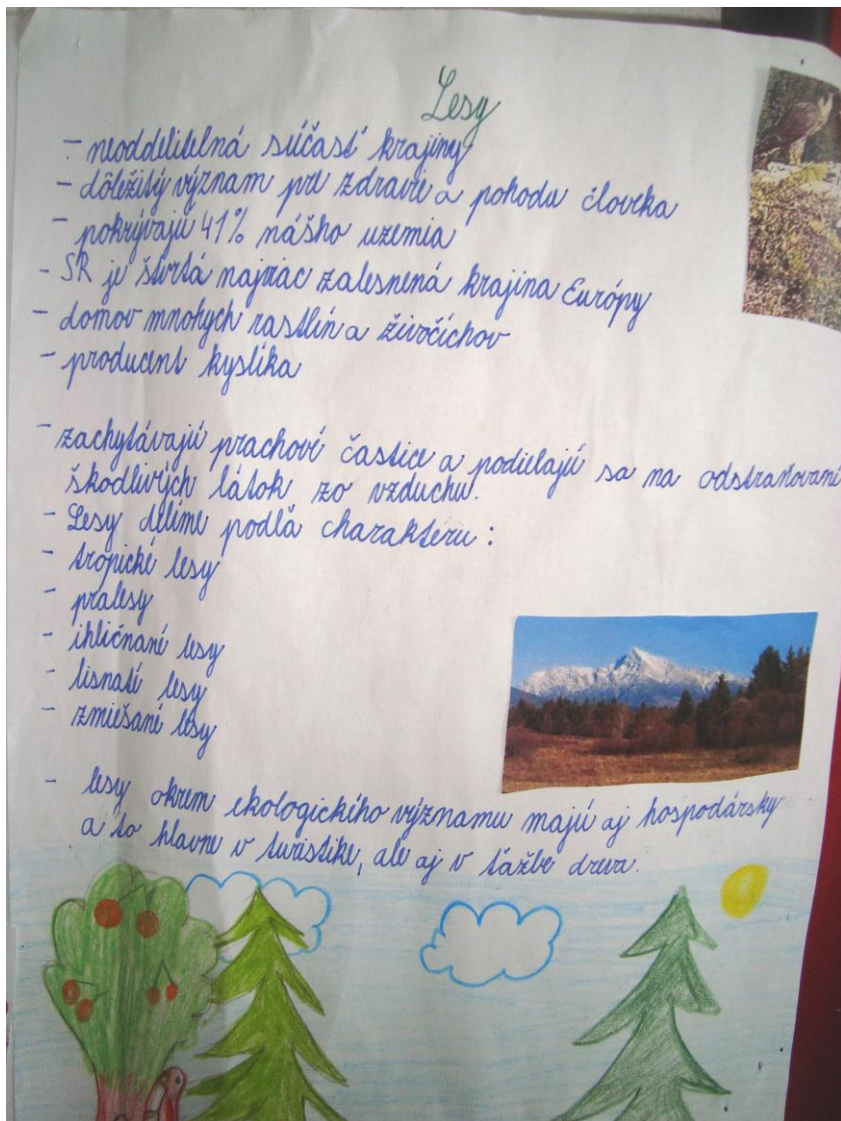 Lesy
- neoddeliteľná súčasť krajiny
- dôležitý význam pre zdravie a pohodu človeka
- pokrývajú 41% nášho uzemia
- SR je štvrtá najviac zalesnená krajina Európy
- domov mnohych rastlín a živočíchov
- producent kyslíka
- zachytávajú prachové častice a podielajú sa na odstraňovaní
škodlivých látok zo vzduchu.
- Lesy delíme podľa charakteru:
- tropické lesy
- pralesy
- ihličnané lesy
- lisnaté lesy
- zmiešané lesy
- lesy okrem ekologického významu majú aj hospodársky
a to hlavne v turistike, ale aj v ťažbe dreva.